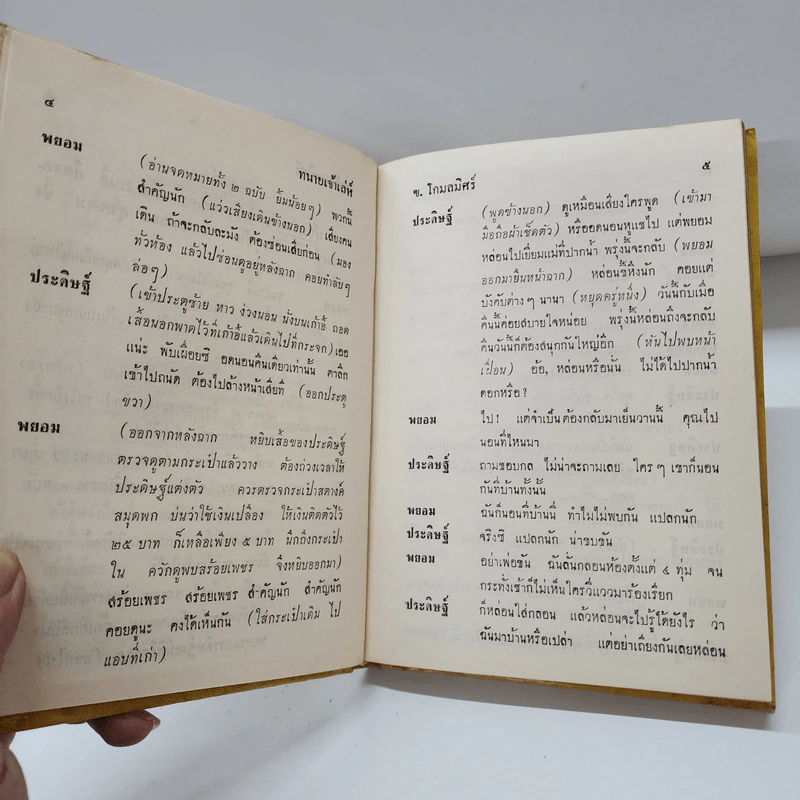 ๔
ทนายเจ้าเล่ห์
พยอม
(อ่านจดหมายทั้ง ๒ ฉบับ ยิ้มน้อยๆ) พวกนี้
สำคัญนัก (แว่วเสียงเดินข้างนอก) เสียงคน
เดิน ถ้าจะกลับละมัง ต้องซ่อนเสียก่อน (มอง
ทั่วห้อง แล้วไปซ่อนดูอยู่หลังฉาก คอยทำลับๆ
ล่อๆ)
ประดิษฐ์
(เข้าประตูซ้าย หาว ง่วงนอน นั่งบนเก้าอี้ ถอด
เสื้อนอกพาดไว้ที่เก้าอี้แล้วเดินไปที่กระจก) เออ
แน่ะ พับเผื่อยซิ อดนอนคืนเดียวเท่านั้น ตาลึก
เข้าไปถนัด ต้องไปล้างหน้าเสียที (ออกประตู
ขวา)
พยอม
(ออกจากหลังฉาก หยิบเสื้อของประดิษฐ์
ตรวจดูตามกระเป๋าแล้ววาง ต้องถ่วงเวลาให้
ประดิษฐ์แต่งตัว ควรตรวจกระเป๋าสตางค์
สมุดพก บ่นว่าใช้เงินเปลือง ให้เงินติดตัวไว้
๒๕ บาท ก็เหลือเพียง ๕ บาท นึกถึงกระเป๋า
ใน ควักดูพบสร้อยเพชร จึงหยิบออกมา)
สร้อยเพชร สร้อยเพชร สำคัญนัก สำคัญนัก
คอยดูนะ คงได้เห็นกัน (ใส่กระเป๋าเดิม ไป
แอบที่เก่า)
๕
ข. โกมลมิศร์
ประดิษฐ์
(พูดข้างนอก) ดูเหมือนเสียงใครพูด (เข้ามา
มือถือผ้าเช็ดตัว) หรืออดนอนหูแซ่ไป แต่พยอม
หล่อนไปเยี่ยมแม่ที่ปากน้ำ พรุ่งนี้จะกลับ (พยอม
ออกมายืนหน้าฉาก) หล่อนขี้หึงนัก คอยแต่
บังคับต่างๆ นานา (หยุดครู่หนึ่ง) วันนี้กับเมื่อ
คืนนี้ค่อยสบายใจหน่อย พรุ่งนี้หล่อนถึงจะกลับ
คืนวันนี้ก็ต้องสนุกกันใหญ่อีก (หันไปพบหน้า
เฝื่อน) อ้อ, หล่อนหรือนั่น ไม่ได้ไปปากน้ำ
ดอกหรือ?
พยอม
ไป! แต่จำเป็นต้องกลับมาเย็นวานนี้ คุณไป
นอนที่ไหนมา
ประดิษฐ์
ถามชอบกล ไม่น่าจะถามเลย ใครๆ เขาก็นอน
กันที่บ้านทั้งนั้น
พยอม
ฉันก็นอนที่บ้านนี่ ทำไมไม่พบกัน แปลกนัก
ประดิษฐ์
จริงซิ แปลกนัก น่าขบขัน
พยอม
อย่าเพ่อขัน ฉันลั่นกลอนห้องตั้งแต่ ๔ ทุ่ม จน
กระทั่งเช้าก็ไม่เห็นใครวี่แววมาร้องเรียก
ประดิษฐ์
ก็หล่อนใส่กลอน แล้วหล่อนจะไปรู้ได้ยังไร ว่า
ฉันมาบ้านหรือเปล่า แต่อย่าเถียงกันเลยหล่อน